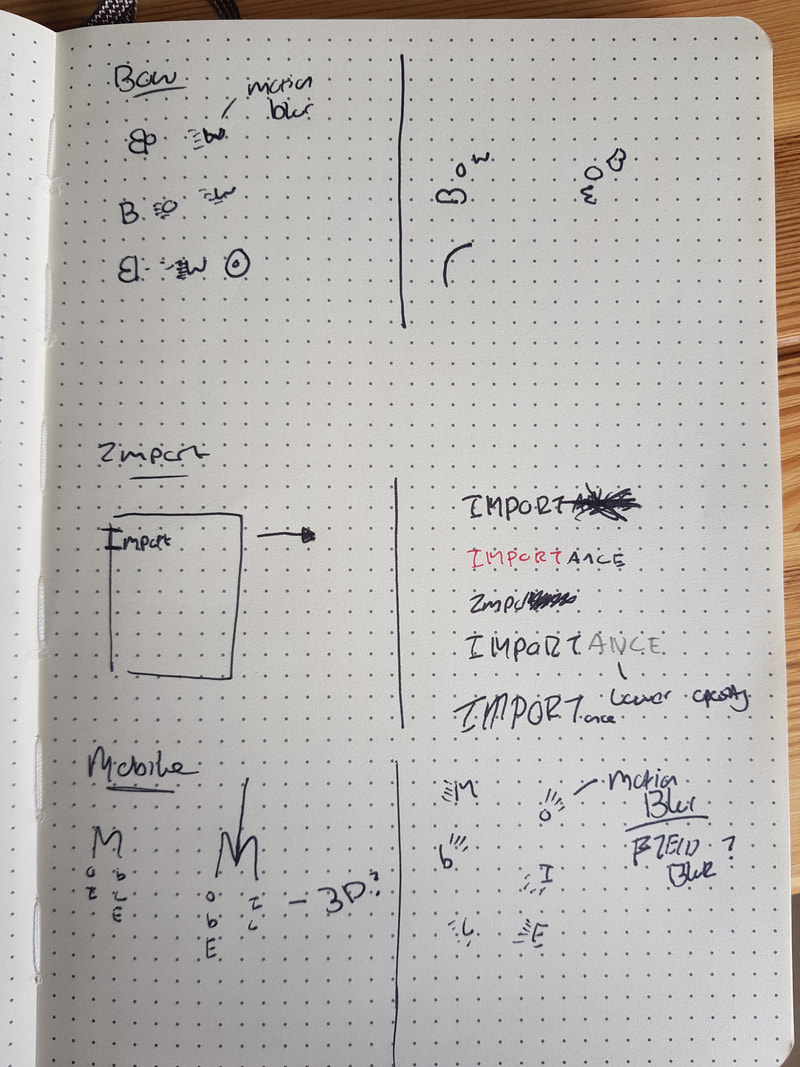 Bow
motion
blur
B W
B O W
B W
B O W
Import
Import
IMPORT
IMPORTANCE
IMPORTANCE
Lower opacity
IMPORTance
Mobile
M
O b
I L
E
M
O I
b L
E
- 3D?
M
O
motion
Blur
b
I
L
E
FIELD ?
Blur